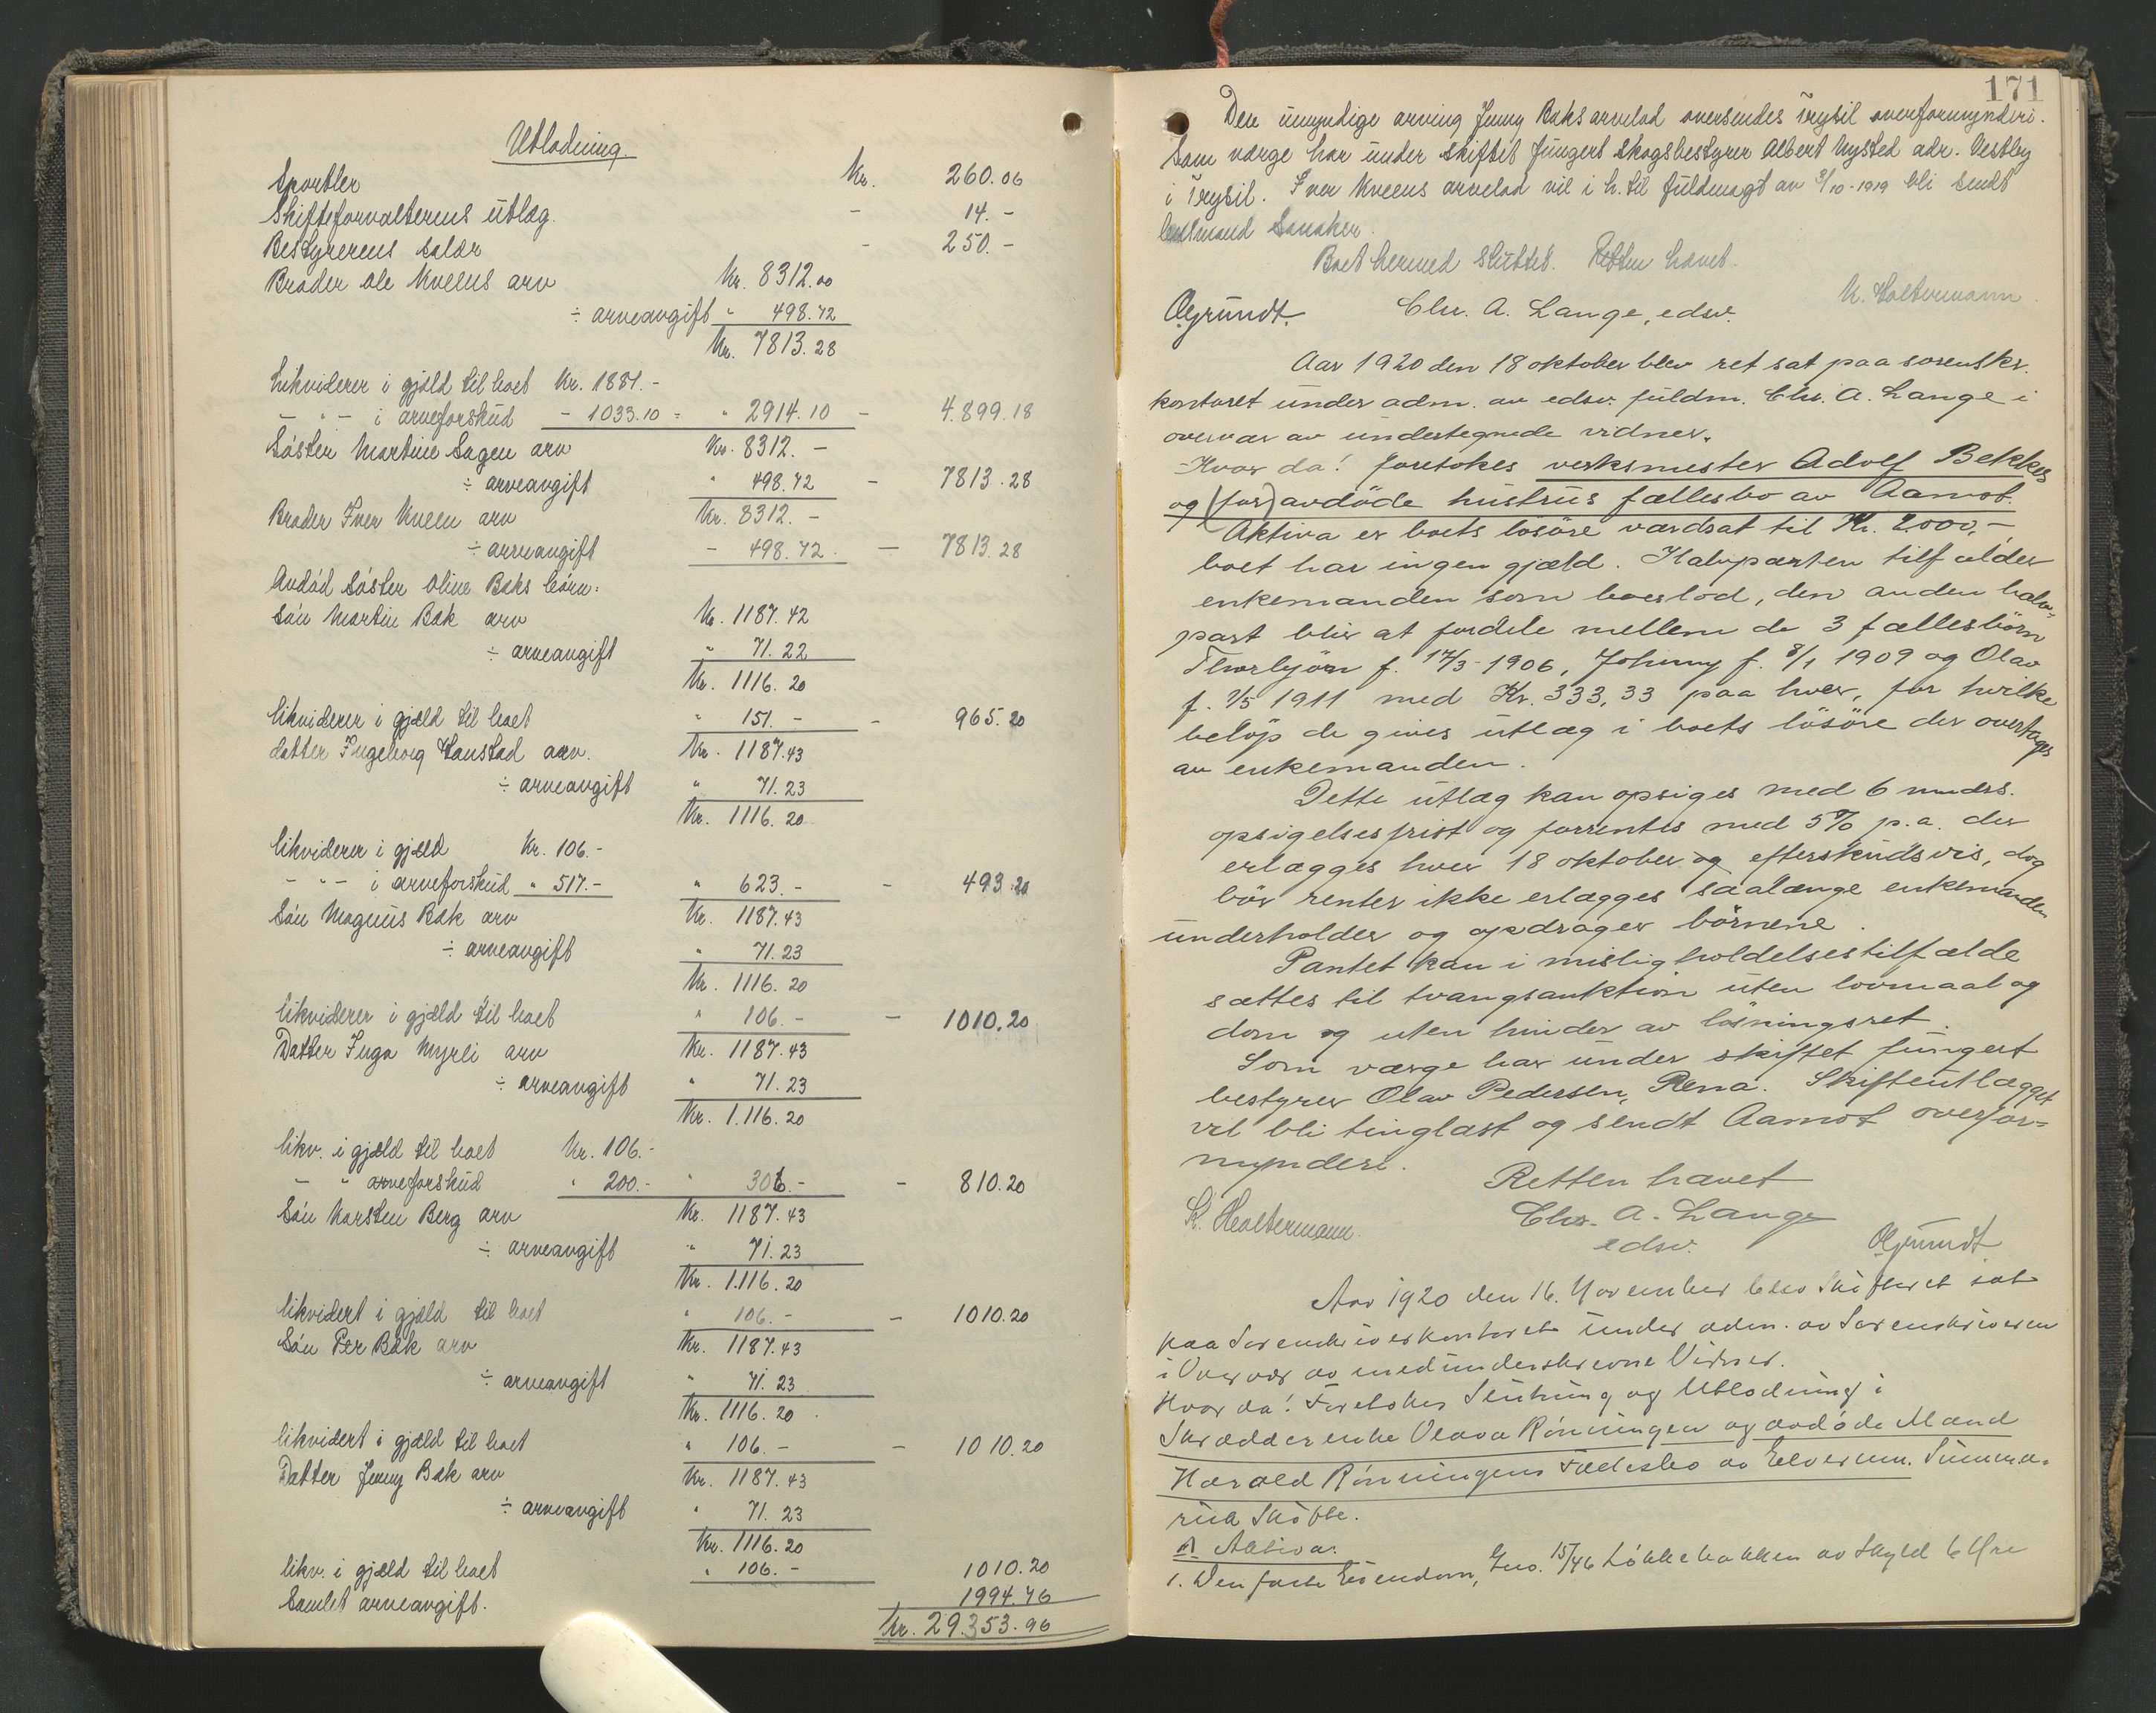 Utlodning.
Sportler Kr. 260.06
Skifteforvalterens utlæg. - 14.-
Bestyrerens salær - 250.-
Broder Ole Kveens arv Kr. 8312.00
÷ arveavgift " 498.72
Kr. 7813.28
Likviderer i gjæld til boet Kr. 1881.-
- " - i arveforskud - 1033.10 = " 2914.10 - 4.899.18
Søster Martine Sagen arv Kr. 8312.-
÷ arveavgift " 498.72 - 7813.28
Broder Iver Kveen arv Kr. 8312.-
÷ arveavgift - 498.72. - 7813.28
Avdød søster Oline Baks børn:
Søn Martin Bak arv Kr. 1187.42
÷ arveavgift " 71.22
Kr. 1116.20
likviderer i gjæld til boet " 151.- - 965.20
datter Ingeborg Hanstad arv. Kr. 1187.43
÷ arveavgift " 71.23
Kr. 1116.20
likviderer i gjæld Kr. 106.-
- " - i arveforskud " 517.- " 623.- - 493.20
Søn Magnus Bak arv Kr. 1187.43
÷ arveavgift " 71.23
Kr. 1116.20
likviderer i gjæld til boet " 106.- - 1010.20
Datter Inga Myrli arv Kr. 1187.43
÷ arveavgift " 71.23
Kr. 1.116.20
likv. i gjæld til boet Kr. 106.-
- " arveforskud " 200.- " 306.- - 810.20
Søn Karsten Berg arv Kr. 1187.43
÷ arveavgift " 71.23
Kr. 1.116.20
likvidert i gjæld til boet " 106.- - 1010.20
Søn Per Bak arv Kr. 1187.43
÷ arveavgift " 71.23
Kr. 1116.20.
likvidert i gjæld til boet " 106.- - 1010.20
Datter Jenny Bak arv Kr. 1187.43
÷ arveavgift " 71.23
Kr. 1116.20
likv. i gjæld til boet " 106.- 1010.20
Samlet arveavgift. 1994.76
Kr. 29.353.96
171
Den umyndige arving Jenny Baks arvelod oversendes Trysil overformynderi.
Som værge har under skiftet fungert skogsbestyrer Albert Nysted adr. Vestby
i Trysil. Iver Kveens arvelod vil i h. til fuldmagt av 3/10-1919 bli sendt
lensmand Sanaker.
Boet hermed sluttet. Retten hævet.
K. Holtermann
OGrundt. Chr. A. Lange, edsv.
Aar 1920 den 18 oktober blev ret sat paa sorenskr.
kontoret under adm. av edsv. fuldm. Chr. A. Lange i
overvær av undertegnede vidner.
Hvor da! foretokes verksmester Adolf Bekkes
og (for) avdøde hustrus fællesbo av Aamot.
Aktiva er boets løsøre værdsat til Kr. 2000,-
boet har ingen gjæld. Halvparten tilfalder
enkemanden som boeslod, den anden halv-
part blir at fordele mellem de 3 fællesbørn
Thorbjørn f. 17/3-1906, Johnny f. 8/1 1909 og Olav
f. 9/5 1911 med Kr. 333,33 paa hver, for hvilke
beløp de gives utlæg i boets løsøre der overtages
av enkemanden.
Dette utlæg kan opsiges med 6 mndrs.
opsigelsesfrist og forrentes med 5% p.a. der
erlægges hver 18 oktober og efterskudsvis, dog
bør renter ikke erlægges saalænge enkemanden
underholder og opdrager børnene.
Pantet kan i misligholdelsestilfælde
sættes til tvangsauktion uten lovmaal og
dom og uten hinder av løsningsret.
Som værge har under skiftet fungert
bestyrer Olav Pedersen, Rena. Skifteutlægget
vil bli tinglæst og sendt Aamot overfor-
mynderi.
Retten hævet
K. Holtermann. Chr. A. Lange
edsv. OGrundt
Aar 1920 den 16. November blev Skifteret sat
paa Sorenskriverkontoret under adm. av Sorenskriveren
i Overvær av medunderskrevne Vidner.
Hvor da! Foretokes Slutning og Utlodning i
Skrædderenke Olava Rønningen og avdøde Mand
Harald Rønningens Fællesbo av Elverum. Summa-
risk Skifte.
A Aktiva:
1. Den faste Eiendom, Gno. 15/46 Løkkebakken av Skyld 6 Øre